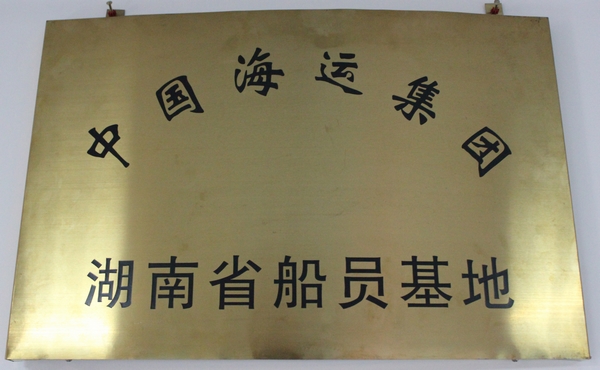 中国海运集团
湖南省船员基地